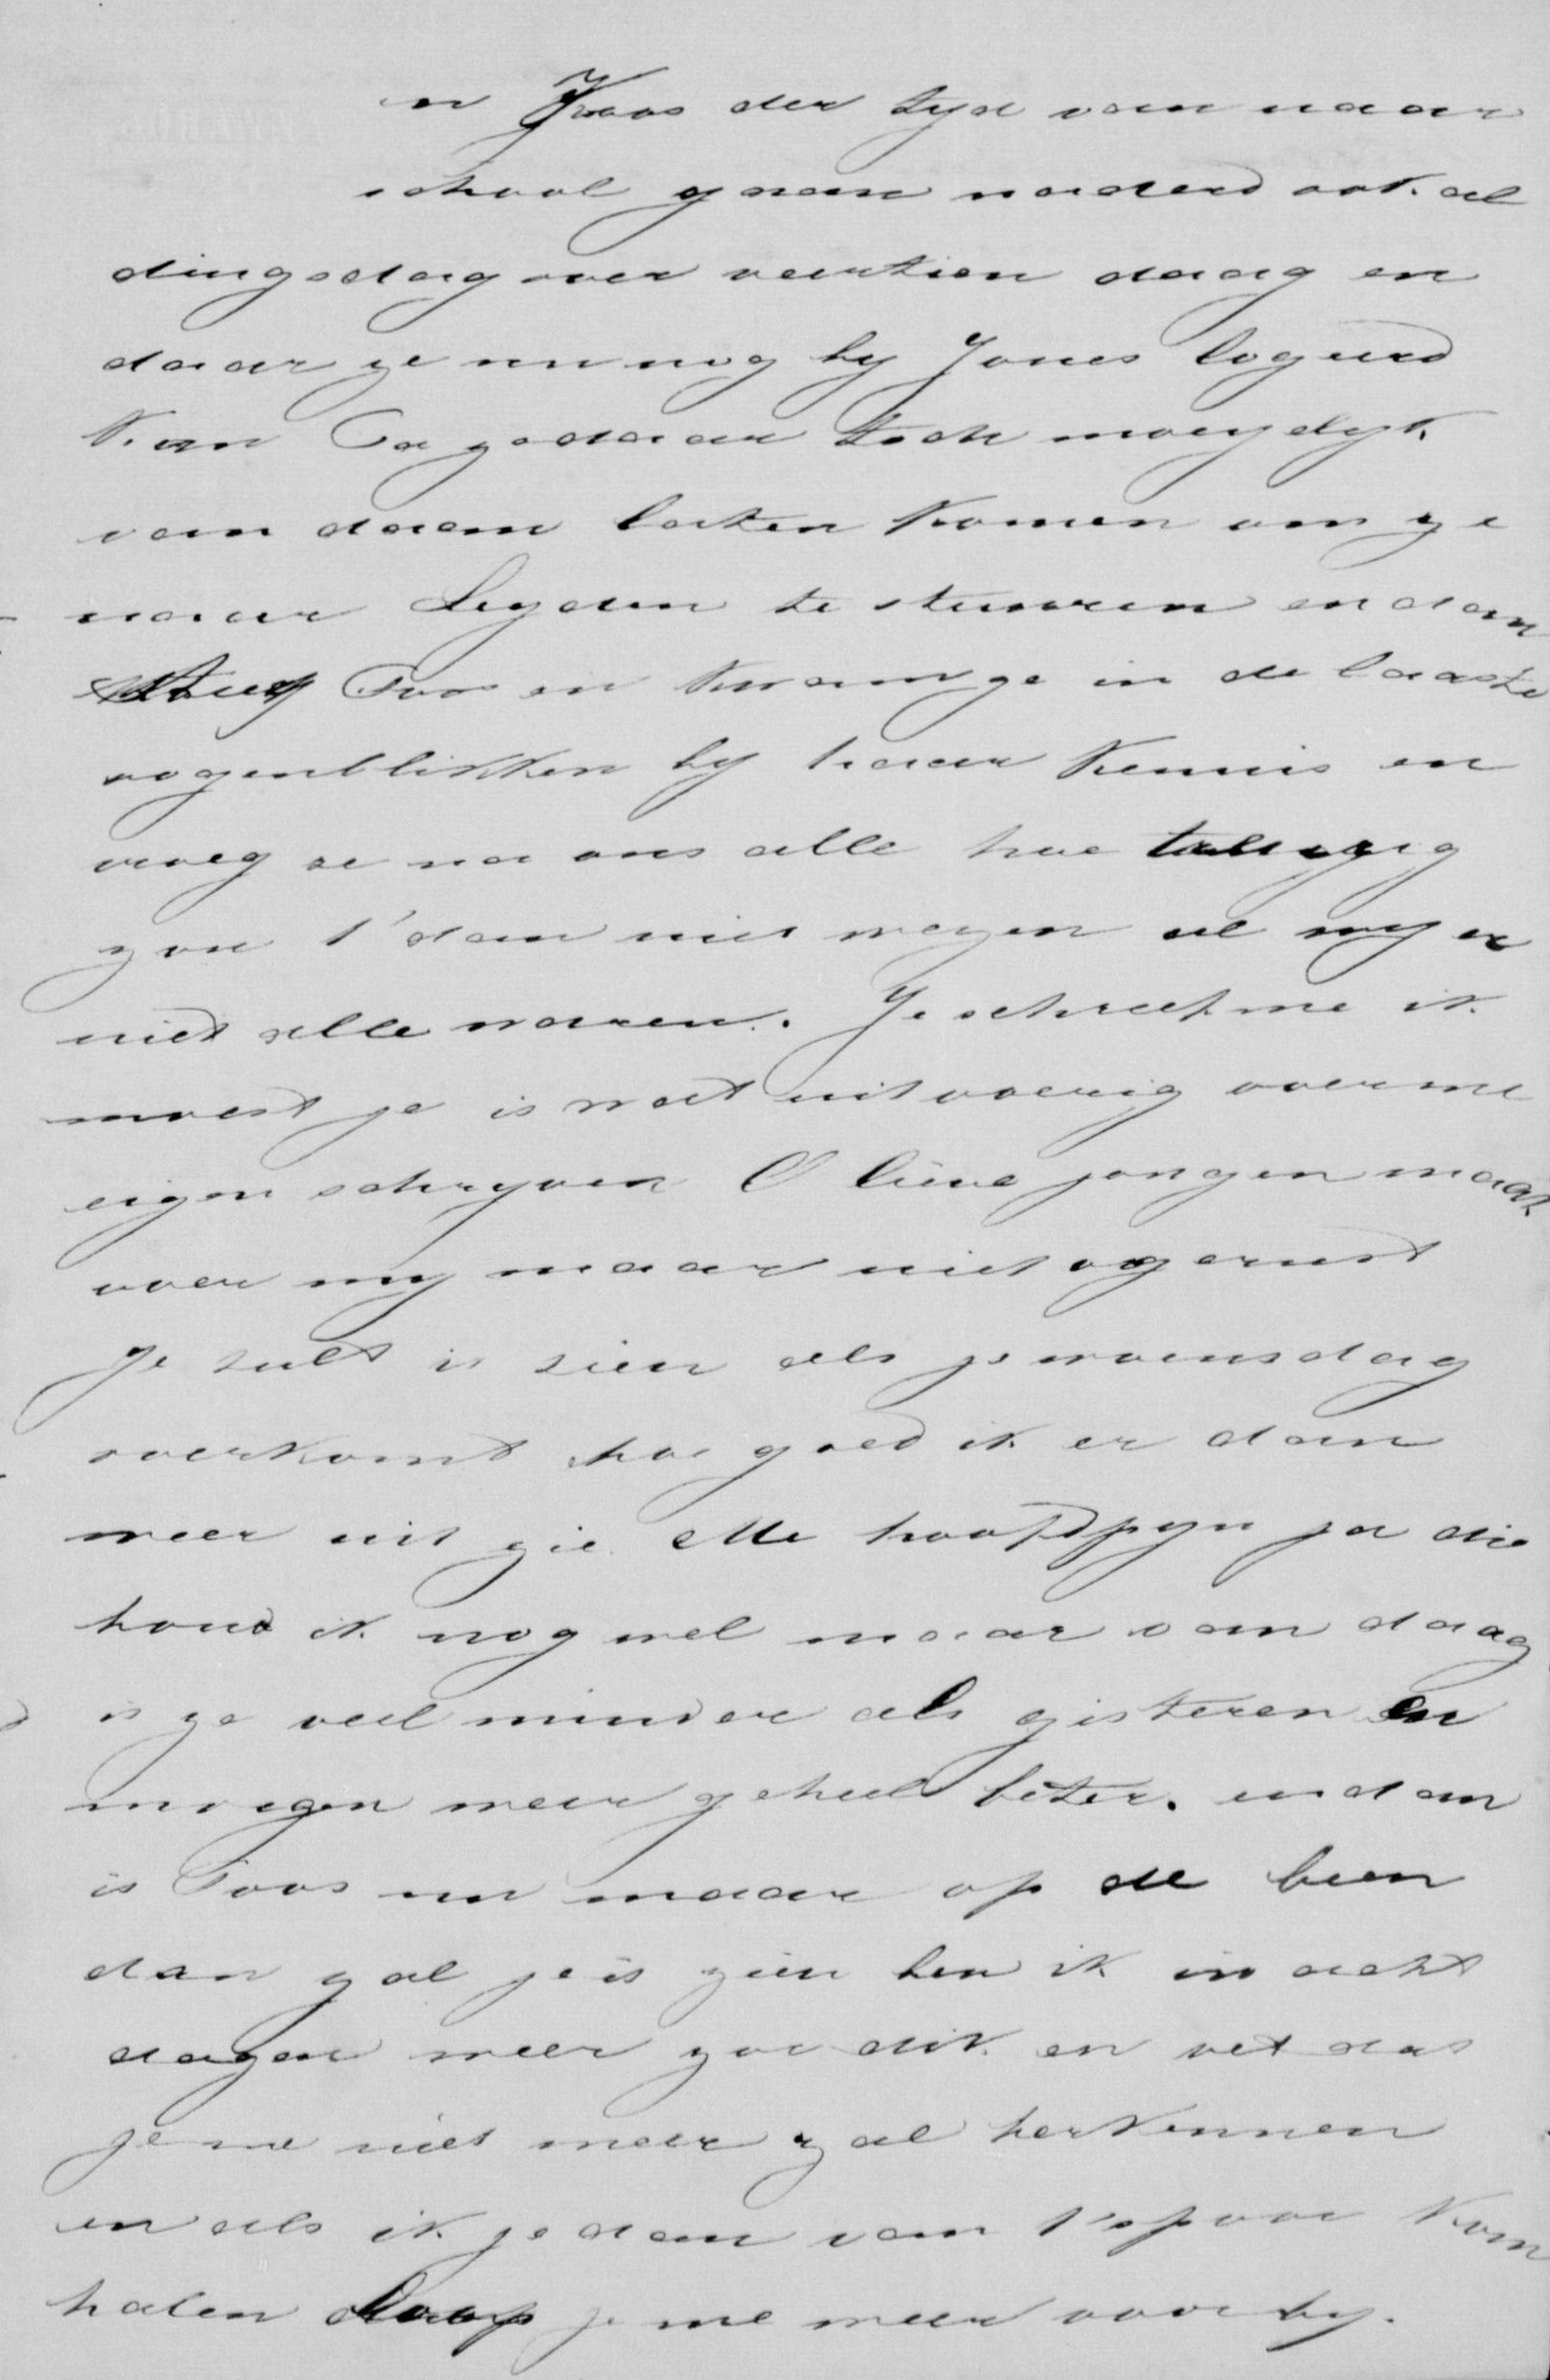 en Koos der tyd van naar
school gaan naderd ook al
dingsdag over veertien daag en
daar ze nu nog by Jones logeerd
kan Pa ze daar toch moeyelyk
van daan laten komen om ze
naar Leyden te stuuren en dan
Toos en kwam ze in de laaste
oogenblikken by haar kennis en
vroeg ze na ons alle hoe
zou 't dan niet wezen al wy er
niet alle waren. Je schreef me ik
moest je is wat uitvoerig over me
eigen schryven O lieve jongen maak
over my maar niet ongerust
Je zult is zien als je woensdag
overkomt hoe goed ik er dan
weer uit zie. Me hoofdpyn ja die
houd ik nog wel maar van daag
is ze veel minder als gisteren en
morgen weer geheel beter. en dan
is Toos nu maar op de been
dan zal je is zien ben ik in acht
dagen weer zoo dik en vet dat
je me niet meer zal herkennen
en als ik je dan van 't spoor kom
halen loop je me weer voorby.